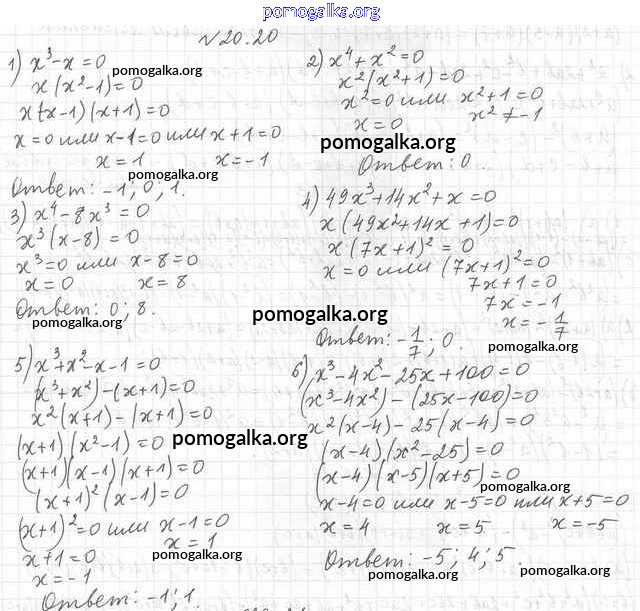 pomogalka.org
№20.20
1) x³-x=0
pomogalka.org
x(x²-1)=0
x(x-1)(x+1)=0
x=0 или x-1=0 или x+1=0
x=1 x=-1
pomogalka.org
Ответ: -1; 0; 1.
2) x⁴+x²=0
x²(x²+1)=0
x²=0 или x²+1=0
x=0 x²≠-1
pomogalka.org
Ответ: 0.
3) x⁴-8x³=0
x³(x-8)=0
x³=0 или x-8=0
x=0 x=8
Ответ: 0; 8.
pomogalka.org
4) 49x³+14x²+x=0
x(49x²+14x+1)=0
x(7x+1)²=0
x=0 или (7x+1)²=0
7x+1=0
7x=-1
pomogalka.org
x=-1/7
Ответ: -1/7; 0.
pomogalka.org
5) x³+x²-x-1=0
(x³+x²)-(x+1)=0
x²(x+1)-(x+1)=0
(x+1)(x²-1)=0
pomogalka.org
(x+1)(x-1)(x+1)=0
(x+1)²(x-1)=0
(x+1)²=0 или x-1=0
x=1
pomogalka.org
x+1=0
x=-1
Ответ: -1; 1
6) x³-4x²-25x+100=0
(x³-4x²)-(25x-100)=0
x²(x-4)-25(x-4)=0
(x-4)(x²-25)=0
(x-4)(x-5)(x+5)=0
pomogalka.org
x-4=0 или x-5=0 или x+5=0
x=4 x=5 x=-5
Ответ: -5; 4; 5.
pomogalka.org
pomogalka.org